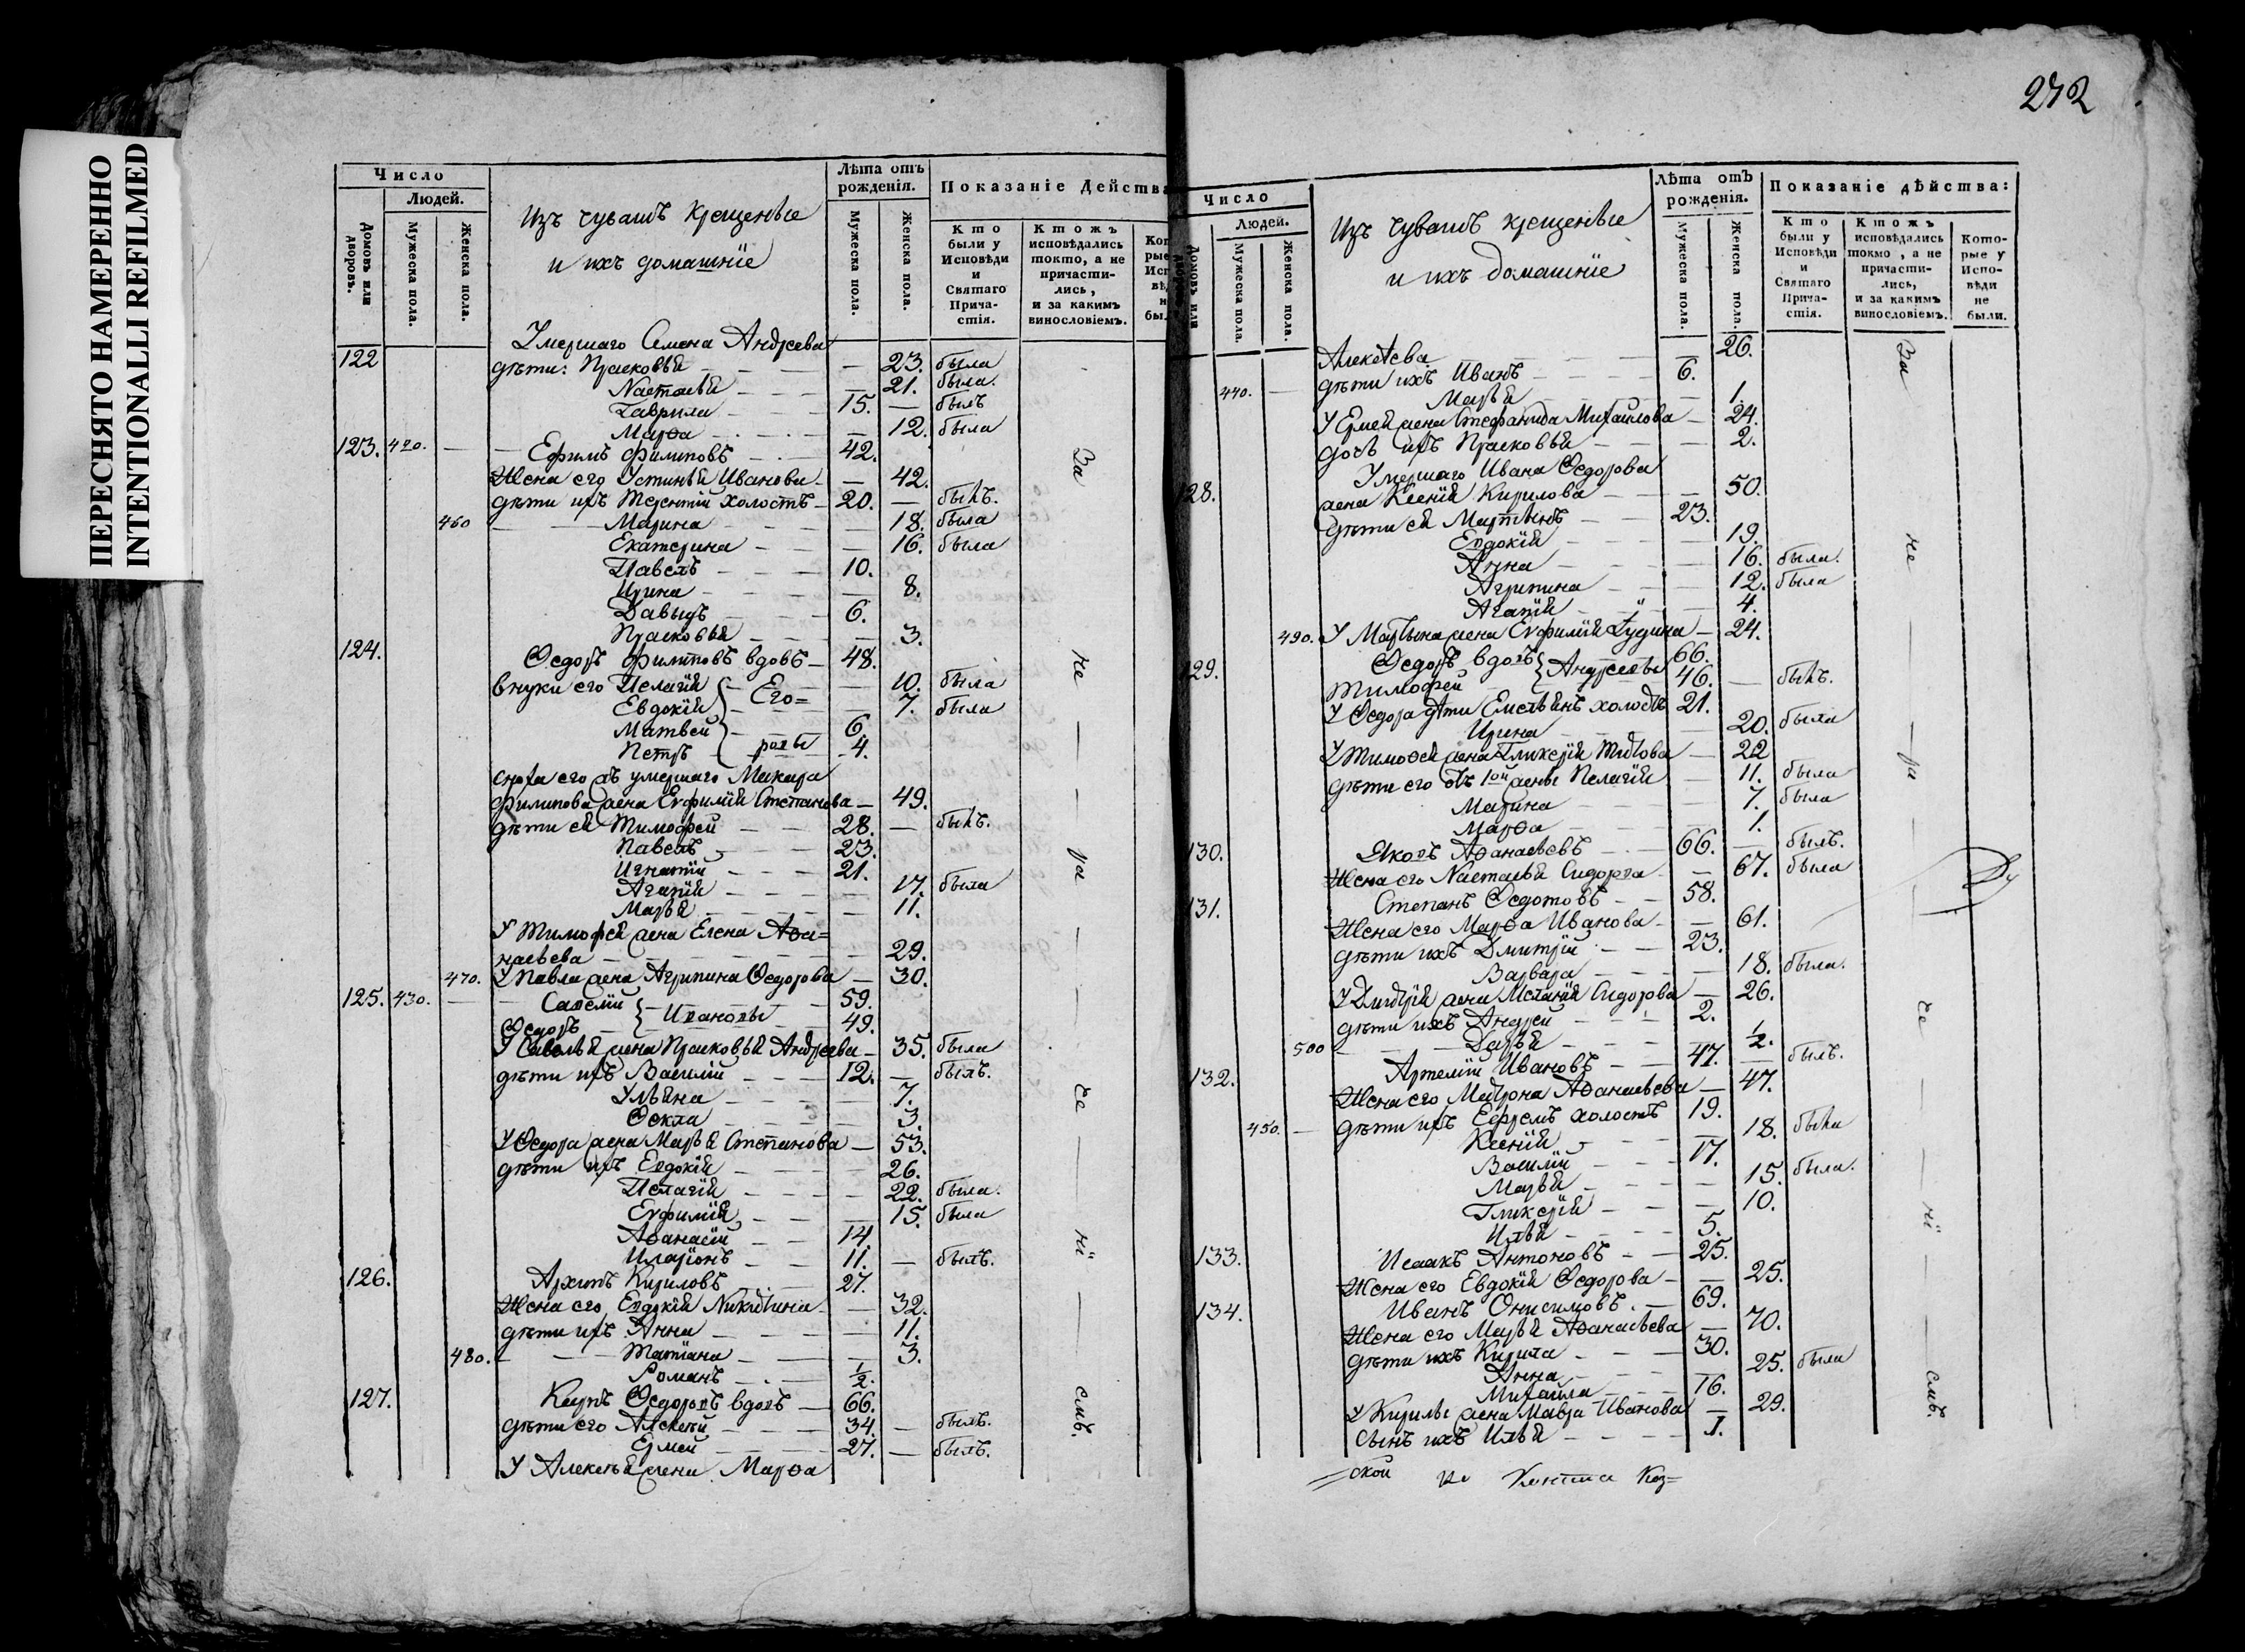 ПЕРЕСНЯТО НАМЕРЕННО
INTENTIONALLI REFILMED
Число
Людей.
Домовъ или дворовъ.
Мужеска пола.
Женска пола.
Изъ чувашъ крещеные
и ихъ домашніе
Лѣта отъ рожденія.
Мужеска пола.
Женска пола.
Показаніе Действа
Кто были у Исповѣди и Святаго Прича-стія.
Ктожъ исповѣдались токто, а не причасти-лись, и за какимъ винословіемъ.
Умершаго Семена Андреева
122 дѣти: Прасковья — 23. была
Настасья — 21. была.
Гаврила 15. — былъ
Марѳа — 12. была
123. 420. — Ефимъ Филиповъ 42.
Жена его Устинья Иванова — 42.
дѣти ихъ Терентій холостъ 20. — былъ.
460 Марина 18. была
Екатерина — 16. была
Павелъ 10.
Ирина — 8.
Давыдъ 6.
Прасковья — 3.
124. Ѳедоръ Филиповъ вдовъ 48.
внуки его Пелагія — 10. была
Евдокія — 7. была
Матвей 6.
Петръ 4.
Его=
ровы
сноха его умершаго Макара
Филипова жена Евфимія Степанова — 49.
дѣти ея Тимофей 28. — былъ.
Павелъ 23.
Игнатій 21.
Агапія — 17. была
Марья — 11.
У Тимофея жена Елена Аѳа=
насьева — 29.
470. У Павла жена Агрипина Ѳедорова — 30.
125. 430. — Савелій 59.
Ивановы
Ѳедоръ 49.
У Савелья жена Прасковья Андреева — 35. была
дѣти ихъ Василій 12. — былъ.
Ульяна — 7.
Ѳекла — 3.
У Ѳедора жена Марья Степанова — 53.
дѣти ихъ Евдокія 26.
Пелагія — 22. была.
Евфимія — 15. была
Аѳанасій 14
Иларіонъ 11. — былъ.
126. Архипъ Кириловъ 27.
Жена его Евдокія Никитина — 32.
дѣти ихъ Анна — 11.
480. Татіана — 3.
Романъ ½.
127. Карпъ Ѳедоровъ вдовъ 66.
дѣти его Алексѣй 34. — былъ.
Ермей 27. — былъ.
У Алексѣя жена Марѳа
За
не
ра
че
ні
емъ.
272
Число
Людей.
Домовъ или
Мужеска пола.
Женска пола.
Изъ чувашъ крещеные
и ихъ домашніе
Лѣта отъ рожденія.
Мужеска пола.
Женска пола.
Показаніе дѣйства:
Кто были у Исповѣди и Святаго Прича-стія.
Ктожъ исповѣдались токмо, а не причасти-лись, и за какимъ винословіемъ.
Кото-рые у Испо-вѣди не были.
Алексѣева — 26.
440. — дѣти ихъ Иванъ 6.
Марья — 1.
У Ермея жена Стефанида Михайлова — 24.
дочь ихъ Прасковья — 2.
Умершаго Ивана Ѳедорова
128. жена Ксенія Кирилова — 50.
дѣти ея Мартынъ 23.
Евдокія — 19.
Анна — 16. была.
Агрипина — 12. была
Агапія — 4.
490. У Мартына жена Евфимія — 24.
129. Ѳедоръ вдовъ 66.
Андреевы
Тимофей 46. — былъ.
У Ѳедора дѣти Емельянъ холостъ 21.
Ирина — 20. была
У Тимоѳея жена Гликерія Титова — 22
дѣти его отъ 1ой жены Пелагія — 11. была
Марина — 7. была
Марѳа — 1.
130. Яковъ Аѳанасьевъ 66. — былъ.
Жена его Настасья Сидорова — 67. была
131. Степанъ Ѳедотовъ 58.
Жена его Марѳа Иванова — 61.
дѣти ихъ Дмитрій 23.
Варвара — 18. была.
У Дмитрія жена Меланія Сидорова — 26.
дѣти ихъ Андрей 2.
500 Дарья — ½.
132. Артемій Ивановъ 47. — былъ.
Жена его Матрона Аѳанасьева — 47.
450. — дѣти ихъ Ефремъ холостъ 19.
Ксенія — 18. была
Василій 17.
Марья — 15. была.
Гликерія — 10.
Илья 5.
133. Исаакъ Антоновъ 25.
Жена его Евдокія Ѳедорова — 25.
134. Иванъ Онисимовъ 69.
Жена его Марья Аѳанасьева — 70.
дѣти ихъ Кирила 30.
Анна — 25. была
Михайла 16.
У Кирилы жена Мавра Иванова — 29.
Сынъ ихъ Илья 1.
За
не
ра
че
ні
емъ.